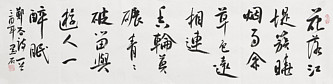 花落江
堤簇暖
烟雨余
草色遠
相連
香輪莫
碾青青
破留與
遊人一
醉眠
鄭谷詩